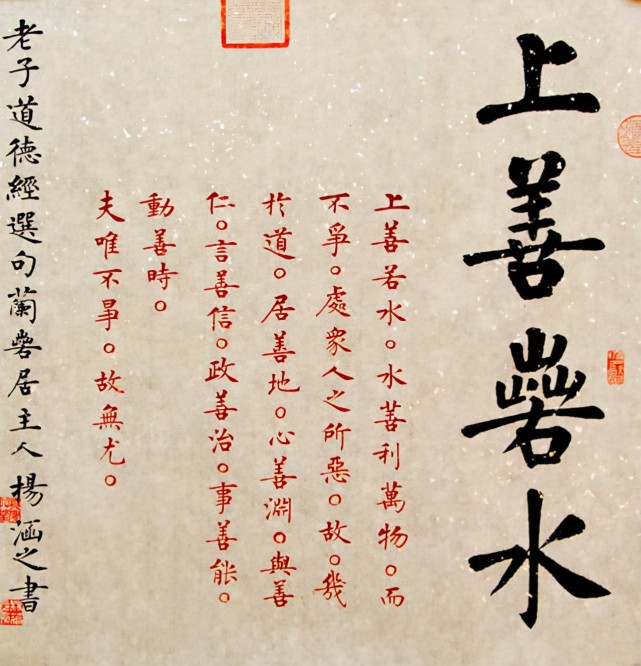 上善若水
上善若水。水善利萬物。而
不爭。處衆人之所惡。故。幾
於道。居善地。心善淵。與善
仁。言善信。政善治。事善能。
動善時。
夫唯不爭。故無尤。
老子道德經選句蘭若居主人楊涵之書